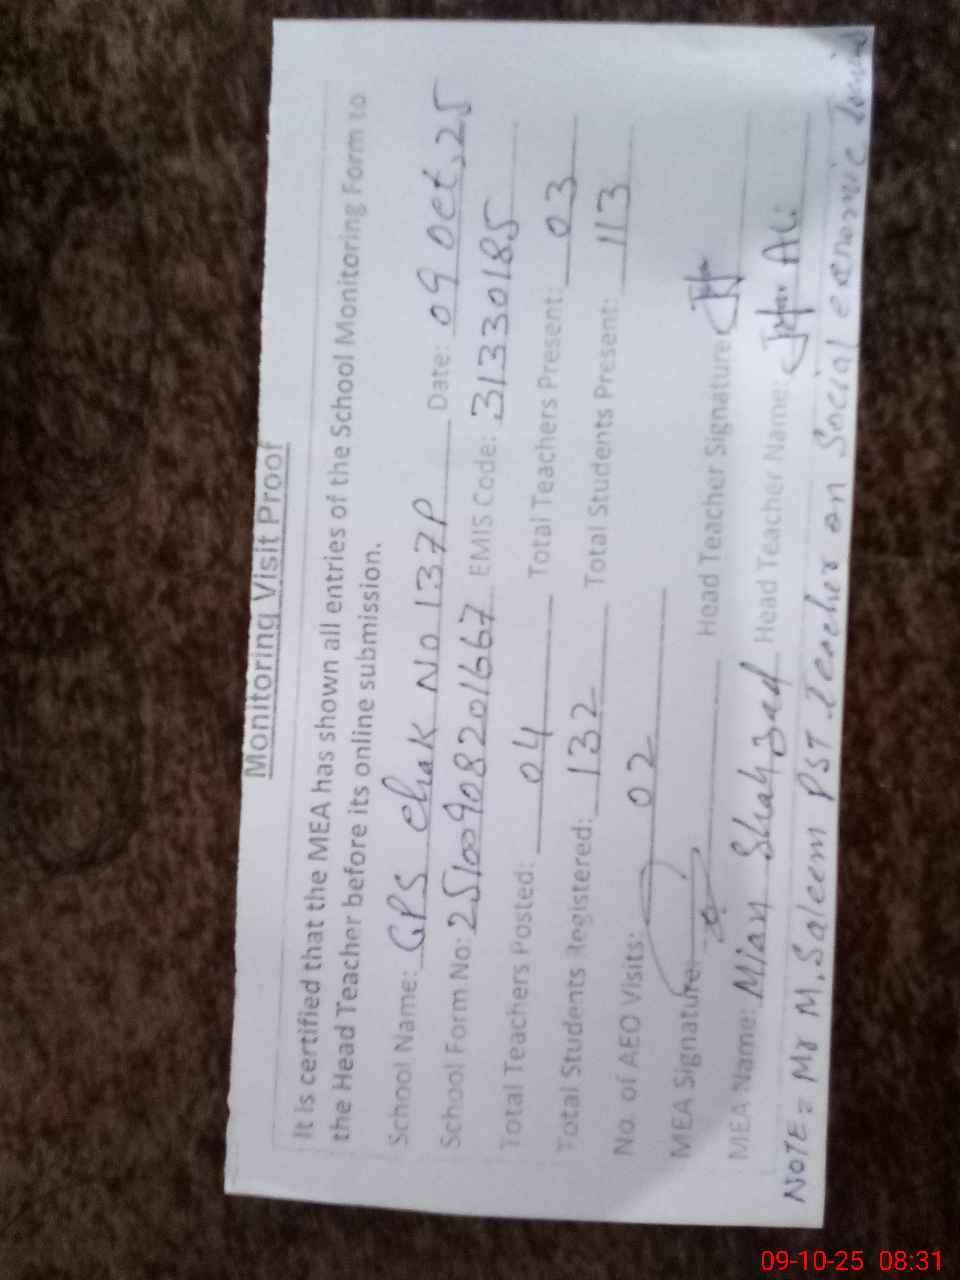 Monitoring Visit Proof
It is certified that the MEA has shown all entries of the School Monitoring Form to
the Head Teacher before its online submission.
School Name: GPS Chak No 137P Date: 09 Oct, 25
School Form No: 25100908201667 EMIS Code: 31330185
Total Teachers Posted: 04 Total Teachers Present: 03
Total Students Registered: 132 Total Students Present: 113
No. of AEO Visits: 02
MEA Signature: Head Teacher Signature
MEA Name: Mian Shahzad Head Teacher Name:
NOTE: Mr M. Saleem PST Teacher on Social
09-10-25 08:31